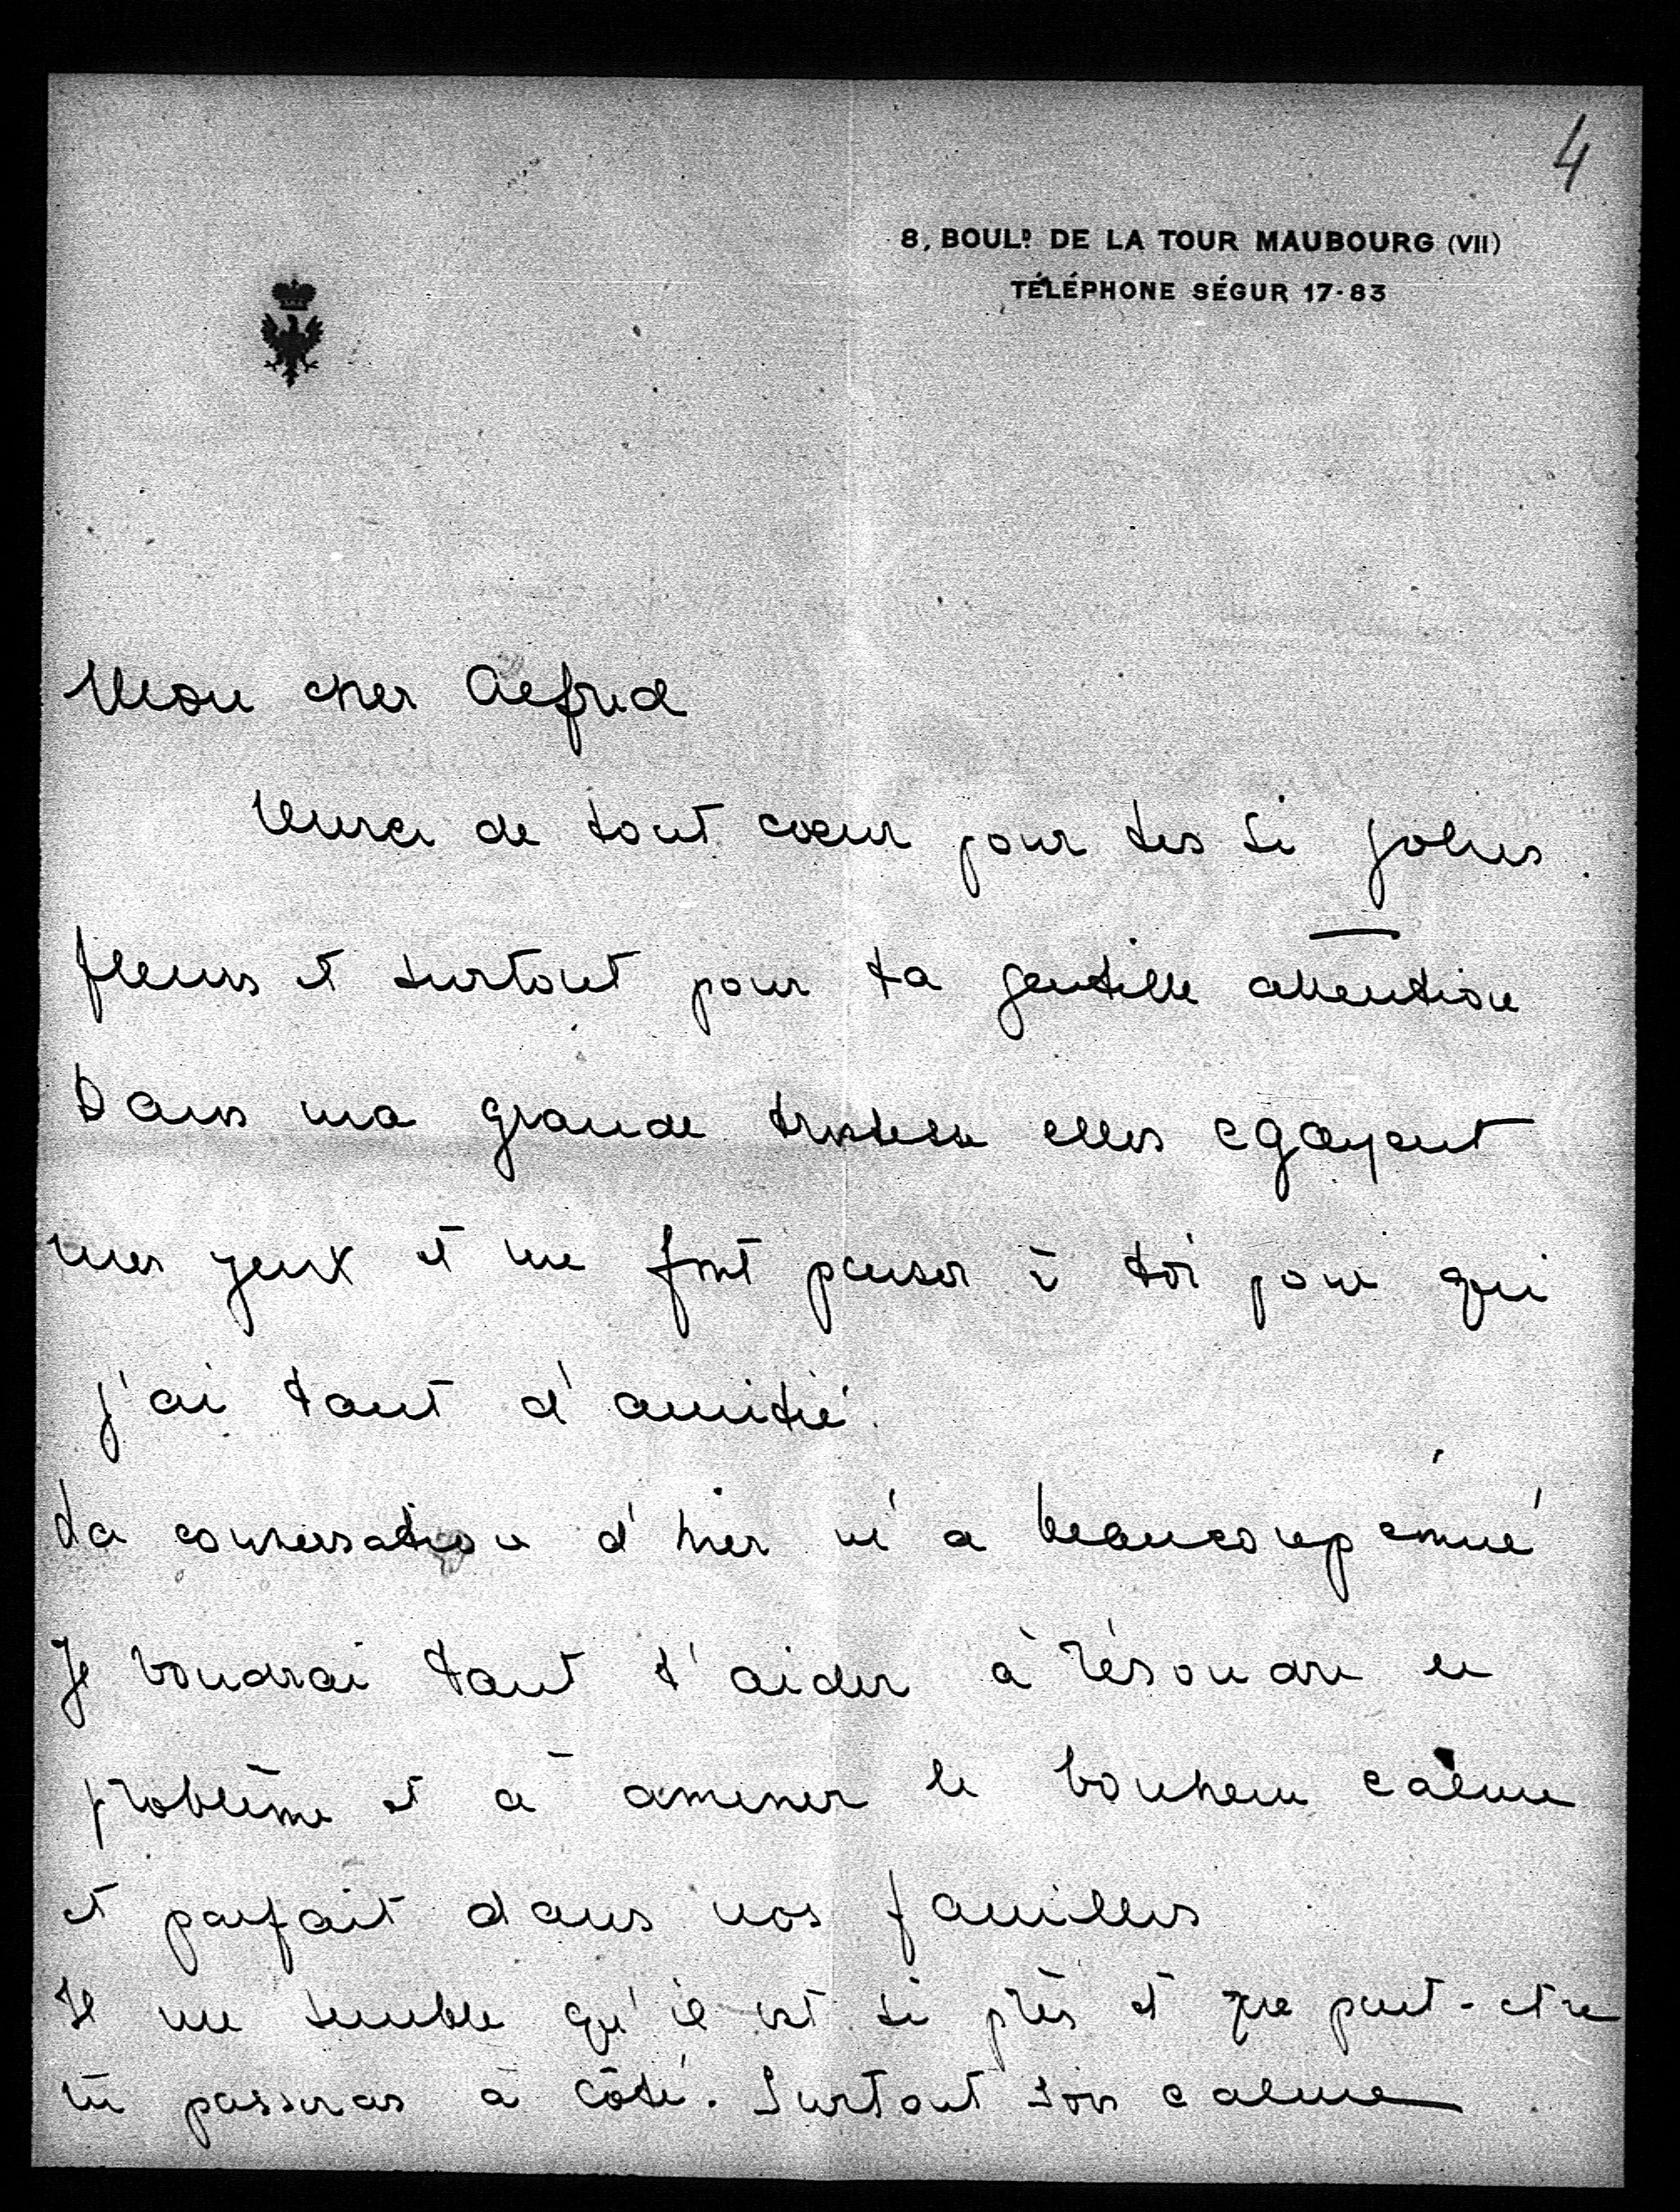 4
8, BOULD. DE LA TOUR MAUBOURG (VII)
TÉLÉPHONE SÉGUR 17-83
Mon cher Alfred
Merci de tout cœur pour tes si jolies
fleurs et surtout pour ta gentille attention
Dans ma grande tristesse elles egayent
mes yeux et me font penser à toi pour qui
j'ai tant d'amitié.
La conversation d'hier m'a beaucoup émue
Je voudrai tant t'aider à résoudre le
problème et à amener le bonheur calme
et parfait dans nos familles
Il me semble qu'il est si près et que peut-etre
tu passeras à côté. Surtout sois calme